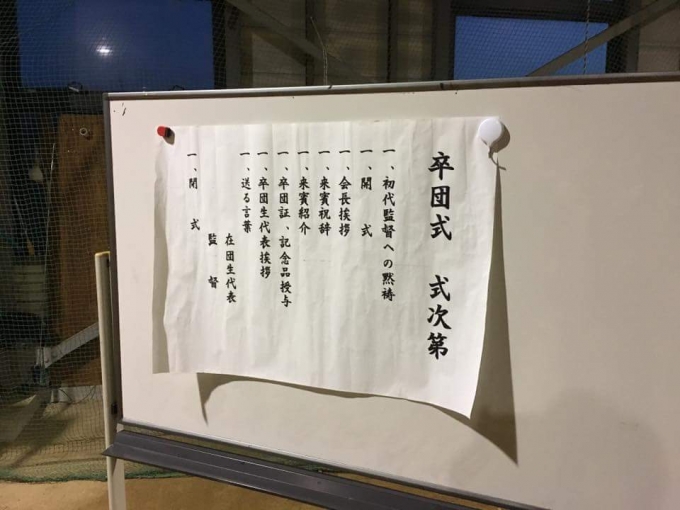 卒団式　式次第
一、初代監督への黙祷
一、開　式
一、会長挨拶
一、来賓祝辞
一、来賓紹介
一、卒団証、記念品授与
一、卒団生代表挨拶
一、送る言葉
在団生代表
監　督
一、閉　式